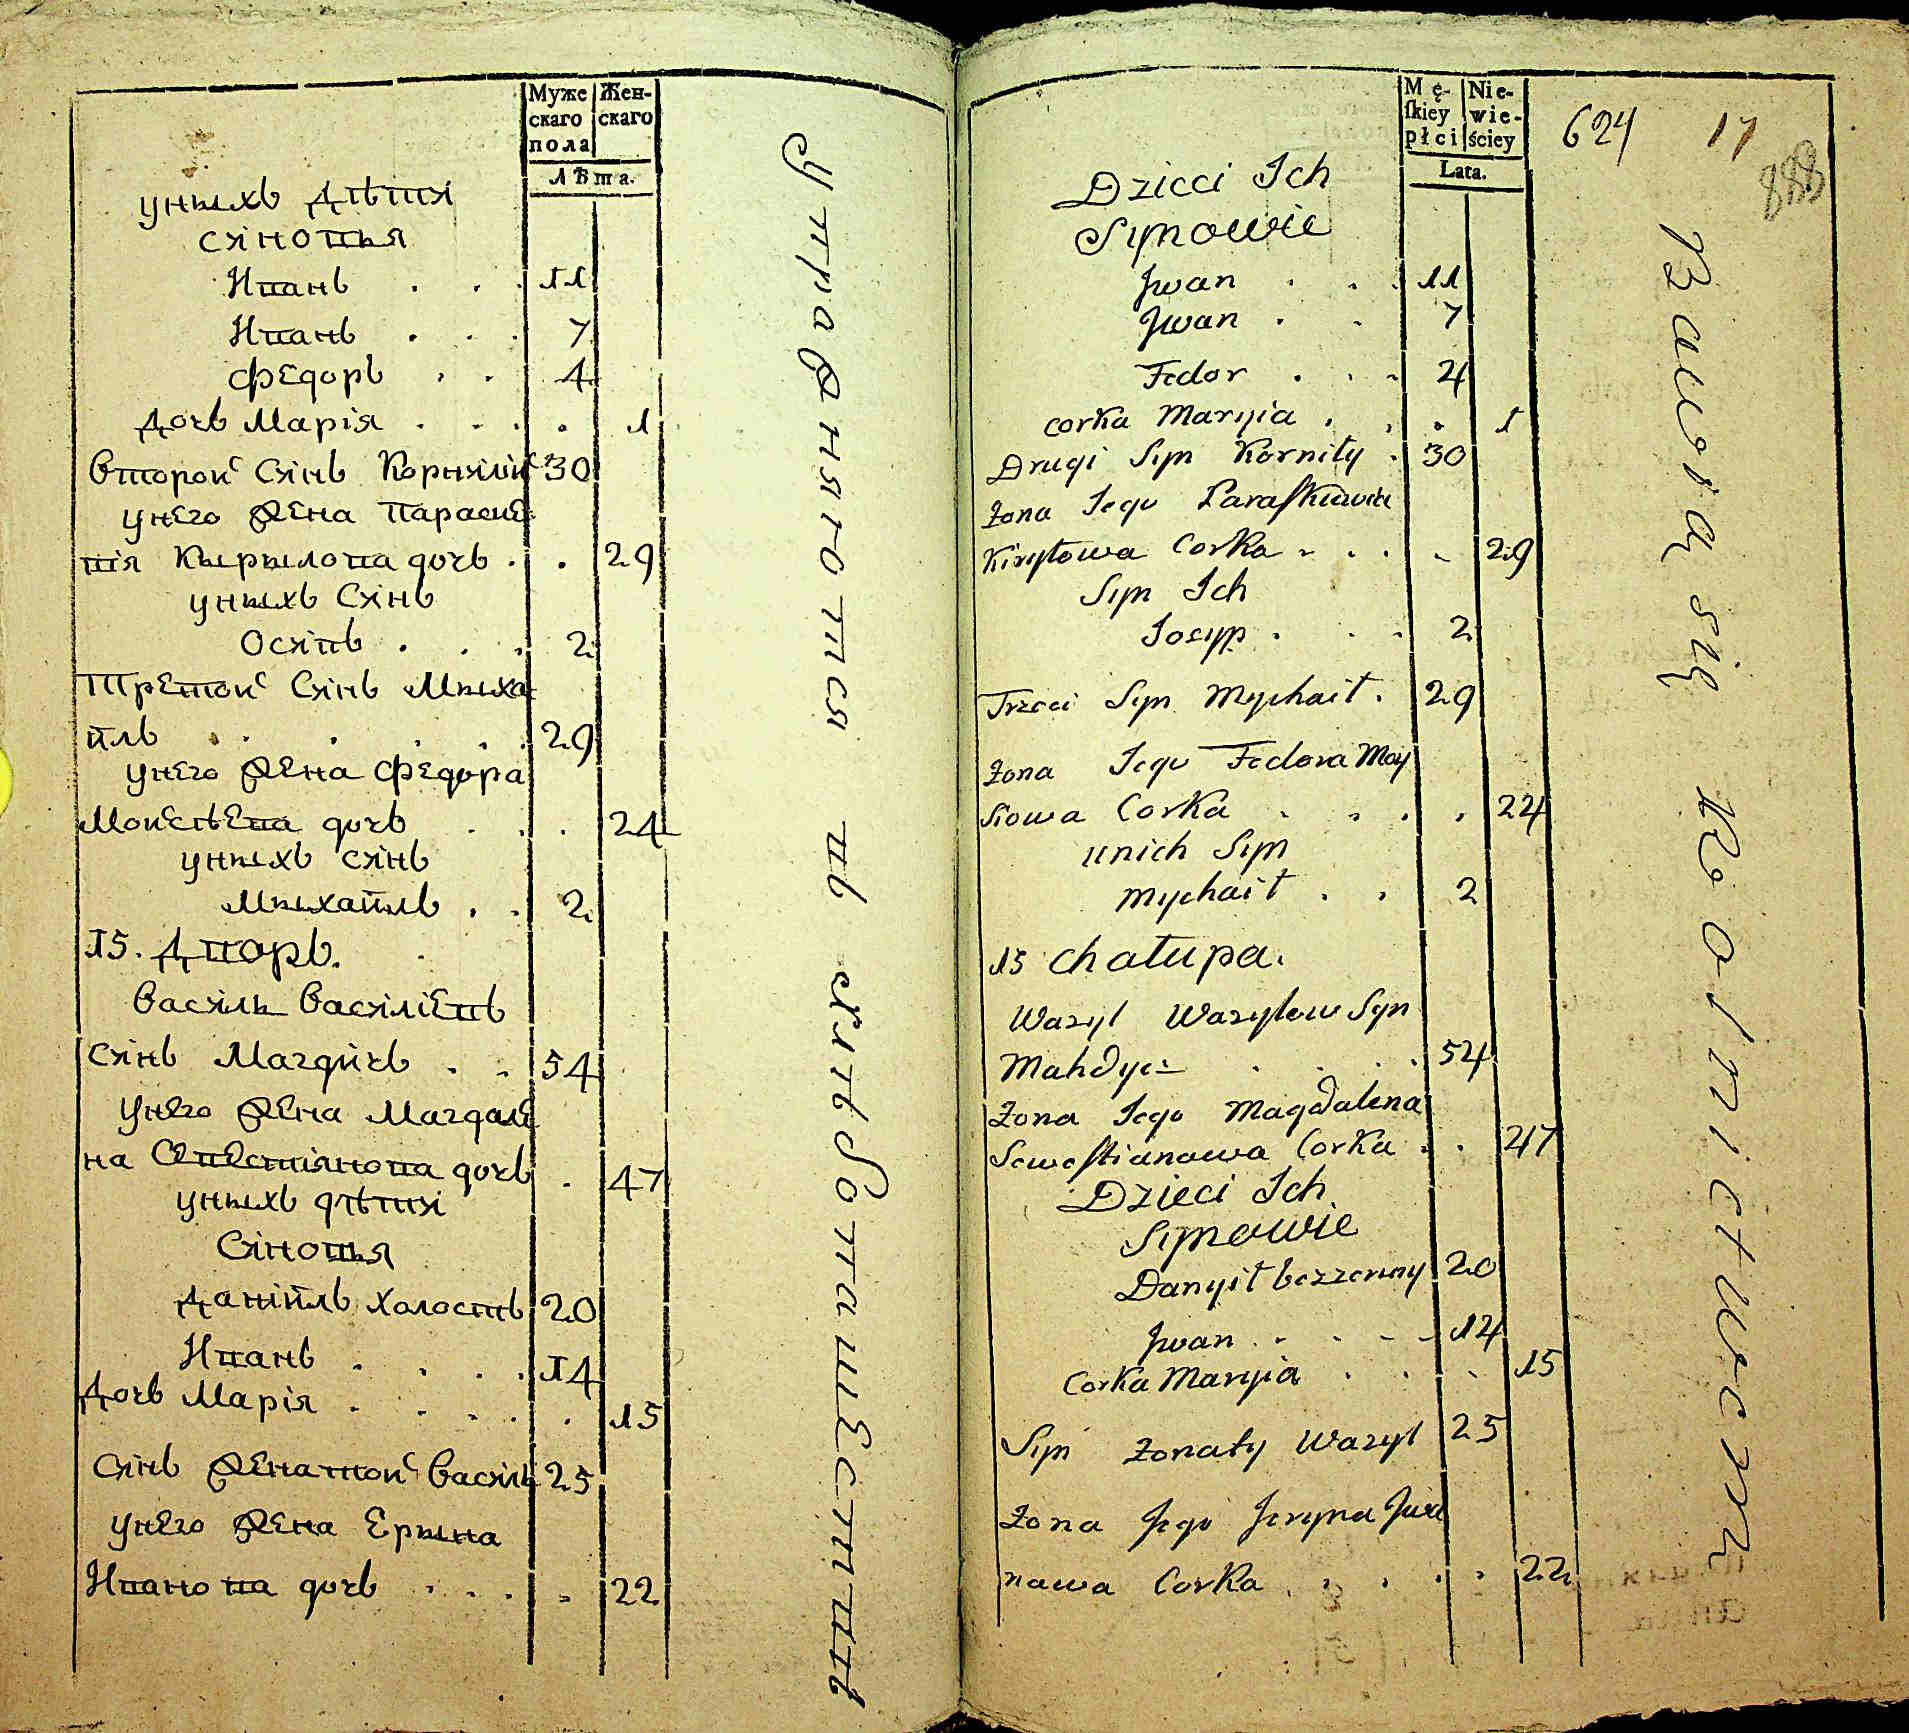 Муже Жен-
скаго скаго
пола
Лѣта.
уныхъ дѣтяі
сяіновья
Иванъ . . . 11
Иванъ . . . 7
Федоръ . . 4
дочь Марія . . . . 1
второй Сяінъ Корнялій 30
унего Жена Параске
вія Кырылова дочь . . 29
уныхъ Сяінъ
Осяіпъ . . . 2
Третой Сяінъ Мыха
йлъ . . . . . 29
унего Жена Федора
Мойсѣева дочь . . . 24
уныхъ сяінъ
Мыхайлъ . . 2
15. Дворъ.
Васяіль Васяіліевъ
Сяінъ Магдичъ . . 54
унего Жена Магдале
на Севестіянова дочь . 47
уныхъ дѣтяі
Сяіновья
Даніилъ холостъ 20
Иванъ . . . . 14
дочь Марія . . . . . 15
Сяінъ Женатой Васяіль 25
унего Жена Ерына
Иванова дочь . . . . 22
упражняются въ хлѣбопашествѣ
Mę- Nie-
ſkiey wie-
płci ściey
Lata.
624 17
888
Dzieci Ich
Synowie
Jwan . . . 11
Jwan . . 7
Fedor . . . 4
corka Maryia . . . 1
Drugi Syn Korniły . 30
Żona Jego Paraſkiewia
Kiryłowa Corka . . . . 29
Syn Ich
Josyp . . . 2
Trzeci Syn Mychaił . 29
Żona Jego Fedora Moy
siowa Corka . . . . 24
unich Syn
Mychaił . . 2
15 Chałupa.
Wazyl Wazylew Syn
Mahdycz . . . . 54
Żona Jego Magdalena
Seweſtianowa Corka . . 47
Dzieci Ich
Synowie
Danyił bezzenny 20
Jwan . . . . 14
Corka Maryia . . . 15
Syn Żonaty Wazyl 25
Żona Jego Jeryna Jwa
nawa Corka . . . . . 22
Bawią się Rolnictwem